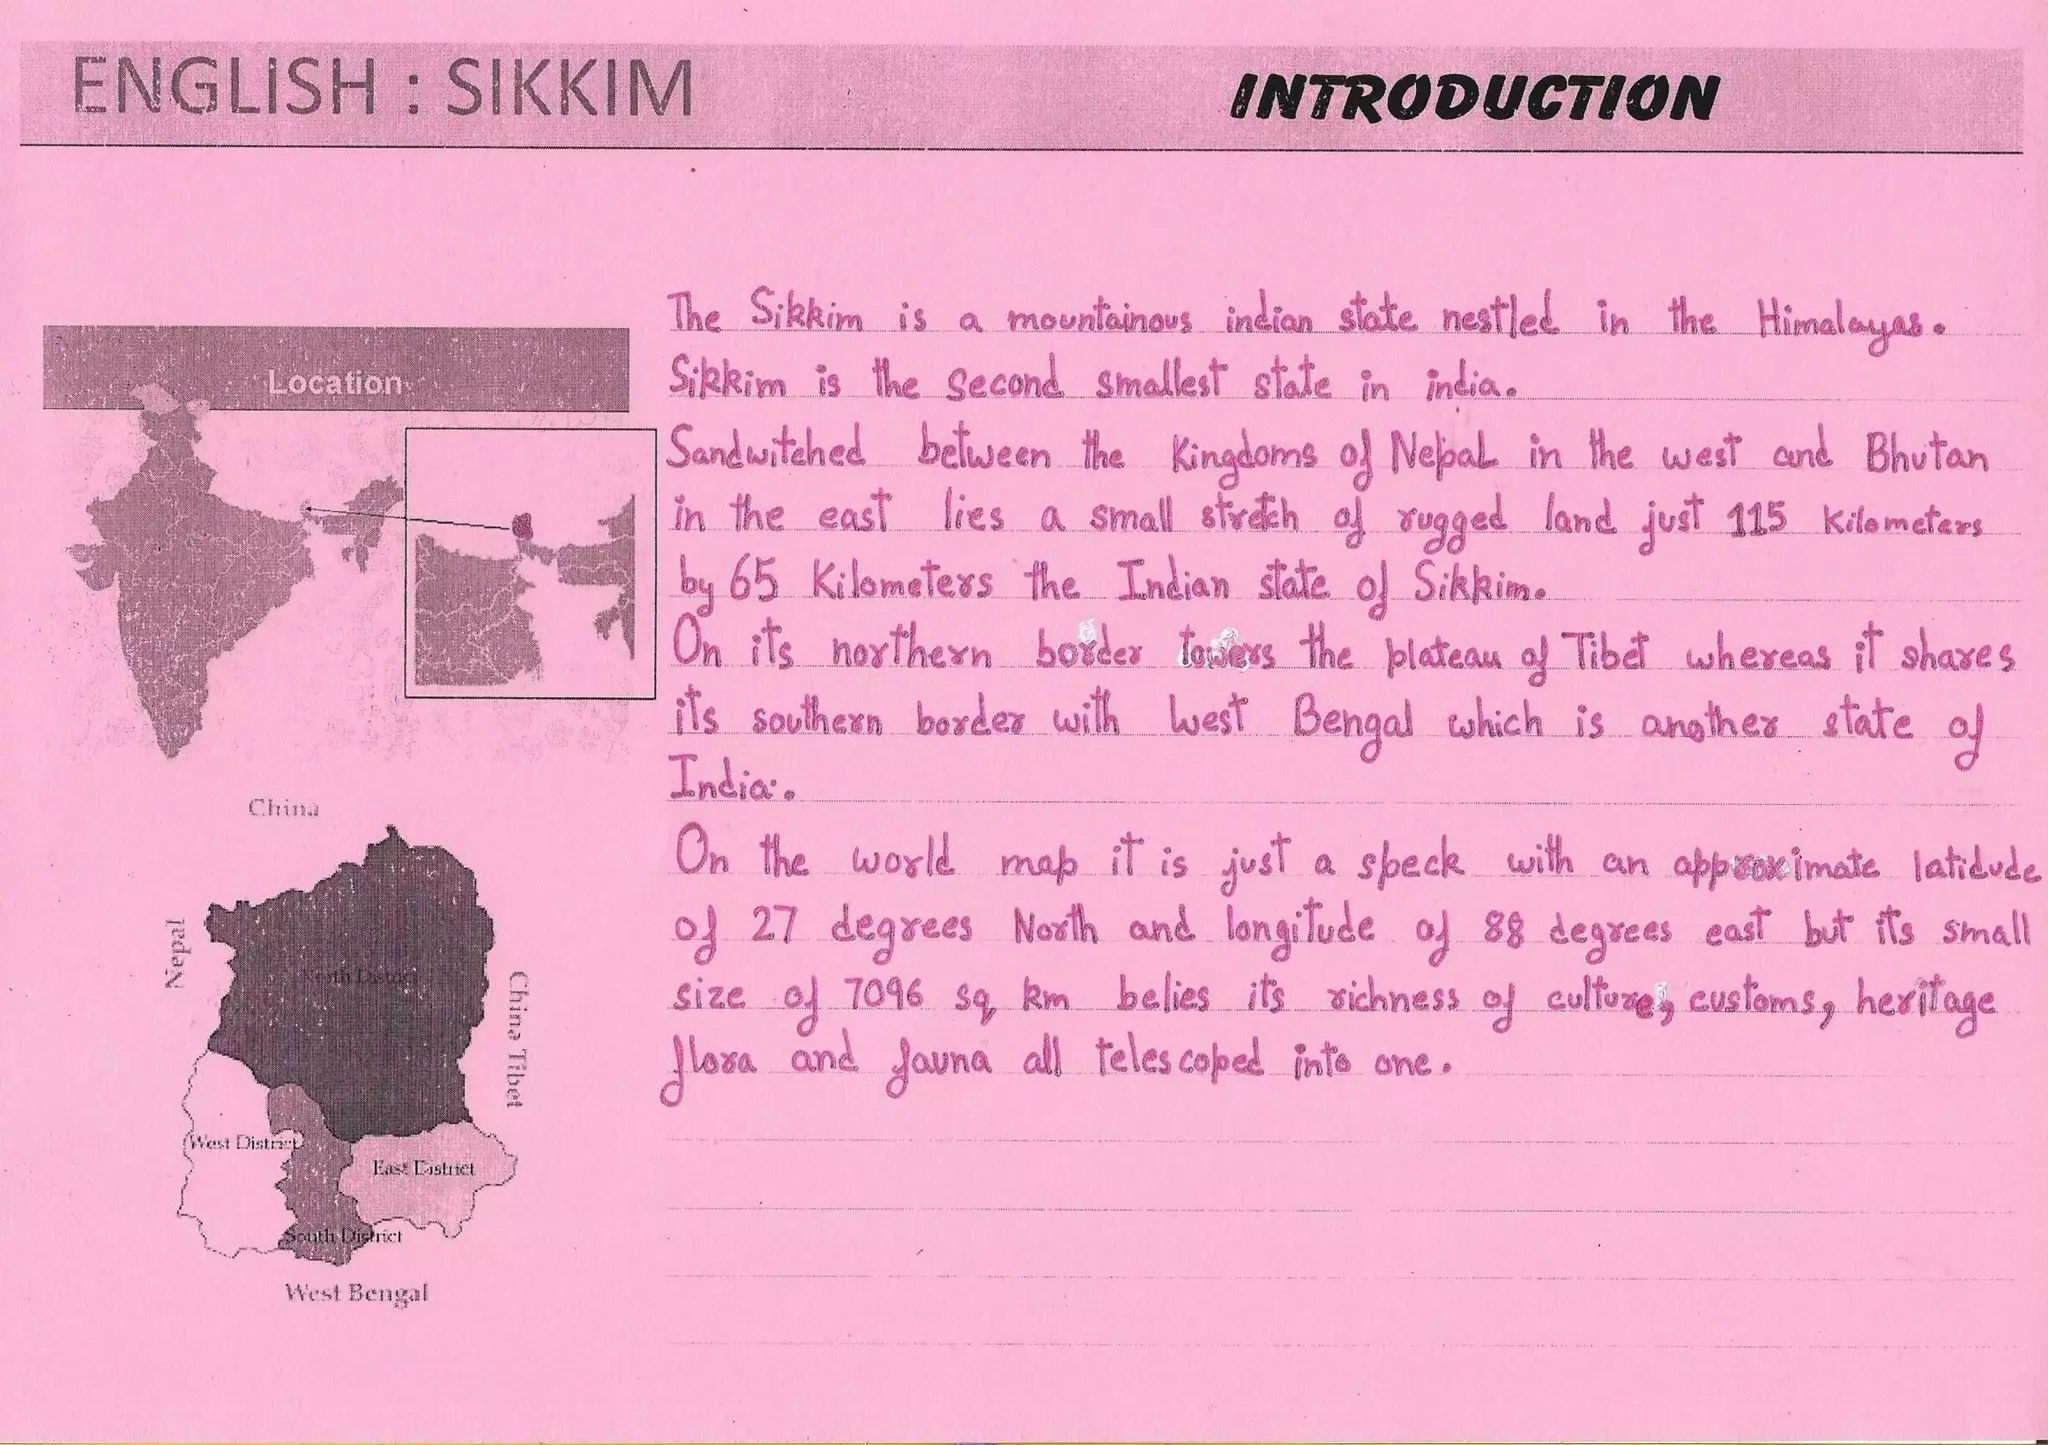 ENGLISH : SIKKIM
INTRODUCTION
Location
The Sikkim is a mountainous indian state nestled in the Himalayas.
Sikkim is the second smallest state in india.
Sandwitched between the Kingdoms of Nepal in the west and Bhutan
in the east lies a small stretch of rugged land just 115 Kilometers
by 65 Kilometers the Indian state of Sikkim.
On its northern border towers the plateau of Tibet whereas it shares
its southern border with West Bengal which is another state of
India.
On the world map it is just a speck with an approximate latidude
of 27 degrees North and longitude of 88 degrees east but its small
size of 7096 sq km belies its richness of culture, customs, heritage
flora and fauna all telescoped into one.
China
Nepal
North District
China Tibet
West District
East District
South District
West Bengal